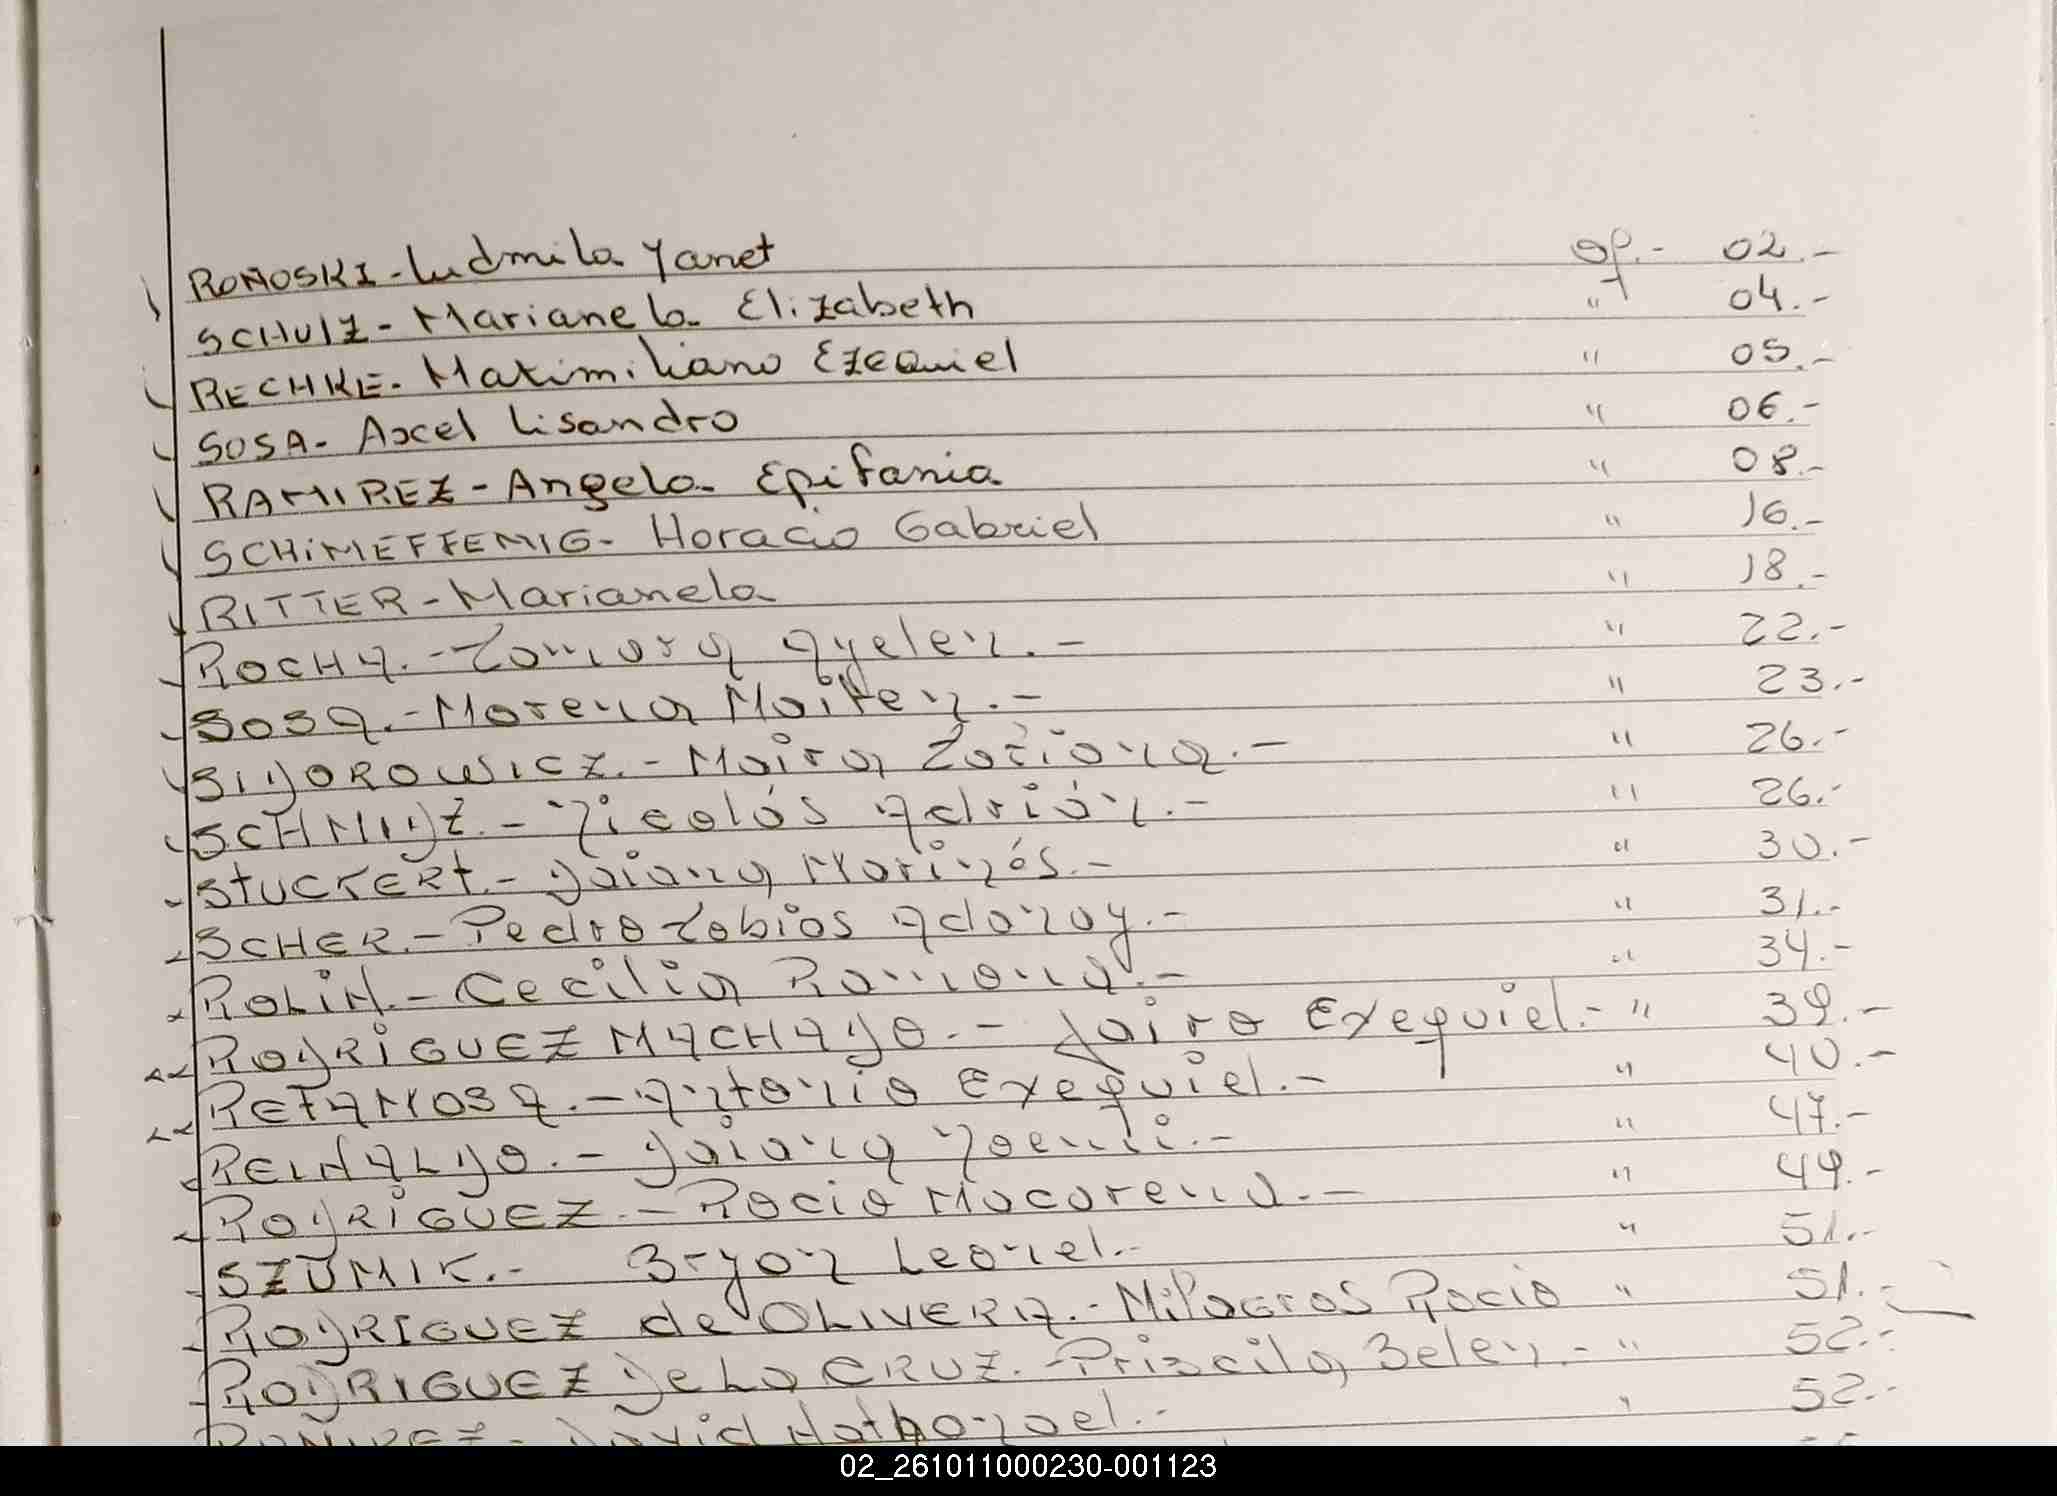 ROMOSKI - Ludmila Yanet op.- 02.-
SCHULZ - Marianela Elizabeth " 04.-
RECHKE - Maximiliano Ezequiel " 05.-
SOSA - Axcel Lisandro " 06.-
RAMIREZ - Angela Epifania " 08.-
SCHIMEFFENIG - Horacio Gabriel " 16.-
RITTER - Marianela " 18.-
ROCHA.- Tamara Ayelen.- " 22.-
SOSA.- Morena Maiten.- " 23.-
SIDOROWICZ.- Maira Tatiana.- " 26.-
SCHMIDZ.- Nicolás Adrián.- " 26.-
STUCKERT.- Daiana Marinés.- " 30.-
SCHER.- Pedro Tobias Adonay.- " 31.-
ROLIN.- Cecilia Ramona.- " 34.-
RODRIGUEZ MACHADO.- Jairo Exequiel.- " 39.-
RETAMOSA.- Antonio Exequiel.- " 40.-
REINALDO.- Daiana Noemi.- " 47.-
RODRIGUEZ.- Rocio Macarena.- " 49.-
SZUMIK.- Bryan Leonel.- " 51.-
RODRIGUEZ de OLIVERA.- Milagros Rocio " 51.-
RODRIGUEZ De La CRUZ.- Priscila Belen.- " 52.-
David Nathanael.- " 52.-
02_261011000230-001123